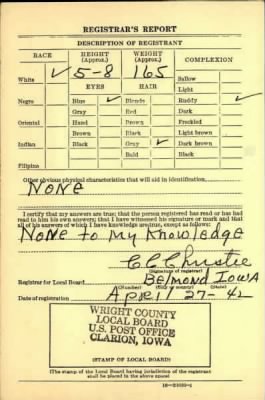 REGISTRAR'S REPORT
DESCRIPTION OF REGISTRANT
RACE HEIGHT (Approx.) WEIGHT (Approx.) COMPLEXION
White ✓ 5-8 165 Sallow
Light
EYES HAIR
Negro Blue ✓ Blonde Ruddy ✓
Gray Red Dark
Oriental Hazel Brown Freckled
Brown Black Light brown
Indian Black Gray ✓ Dark brown
Bald Black
Filipino
Other obvious physical characteristics that will aid in identification
None
I certify that my answers are true; that the person registered has read or has had
read to him his own answers; that I have witnessed his signature or mark and that
all of his answers of which I have knowledge are true, except as follows:
None to my Knowledge
C C Christie
(Signature of registrar)
Registrar for Local Board Belmond Iowa
(Number) (City or county) (State)
Date of registration April 27-42
WRIGHT COUNTY
LOCAL BOARD
U.S. POST OFFICE
CLARION, IOWA
(STAMP OF LOCAL BOARD)
(The stamp of the Local Board having jurisdiction of the registrant
shall be placed in the above space)